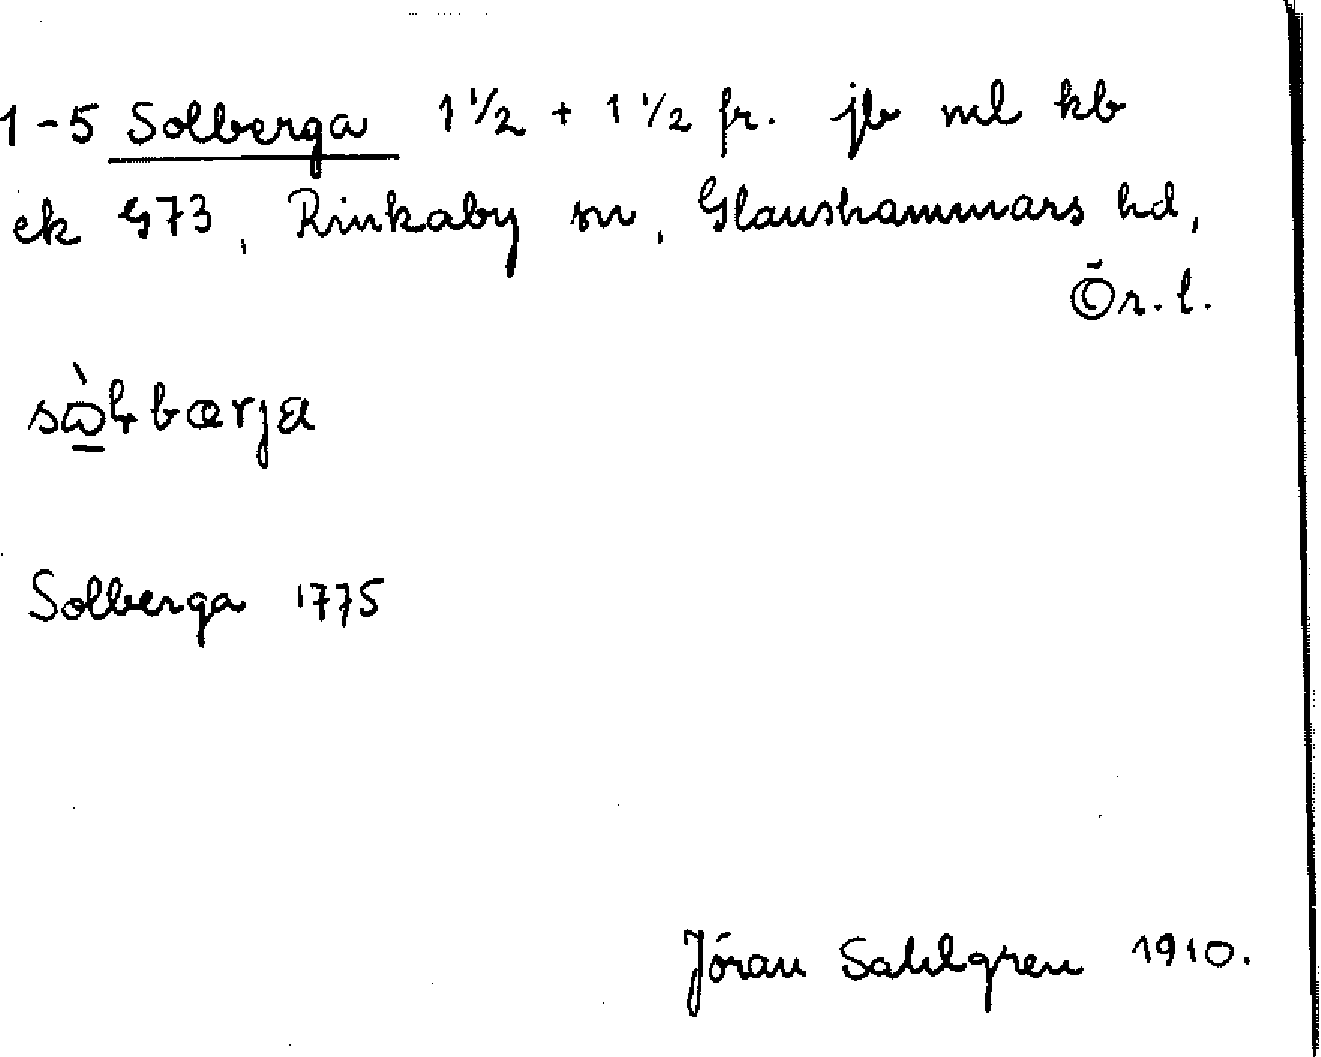 1-5 Solberga 1 1/2 + 1 1/2 fr. jb ml kb
ek G73, Rinkaby sn, Glanshammars hd,
Ör. l.
Solberga 1775
Jöran Sahlgren 1910.